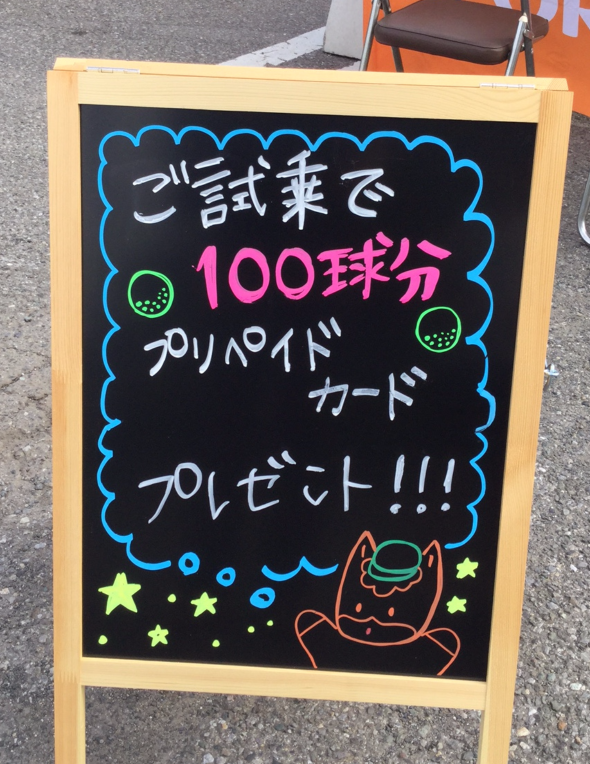 ご試乗で
100球分
プリペイド
カード
プレゼント!!!